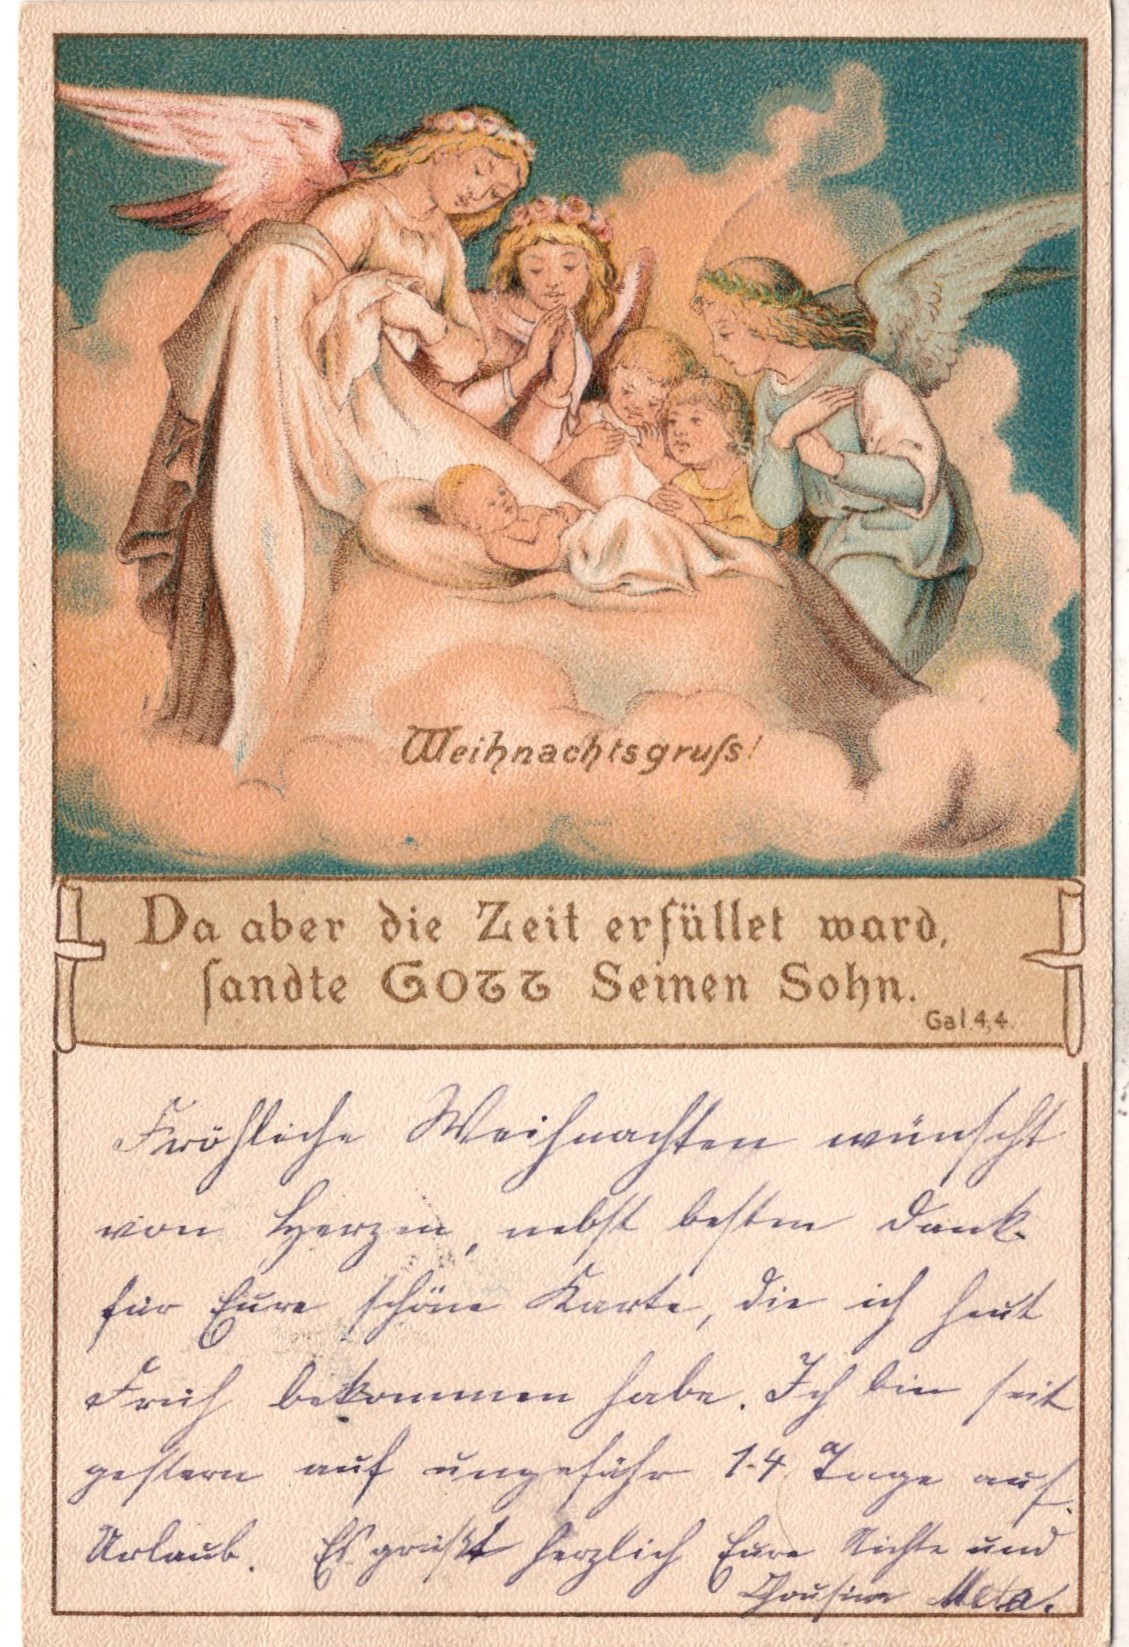 Weihnachtsgruſs!
Da aber die Zeit erfüllet ward,
ſandte GOTT Seinen Sohn.
Gal. 4,4.
Fröhliche Weihnachten wünscht
von Herzen, nebst besten Dank
für Eure schöne Karte, die ich heut
Früh bekommen habe. Ich bin seit
gestern auf ungefähr 14 Tage auf
Urlaub. Es grüßt herzlich Eure Nichte und
Cousine Meta.